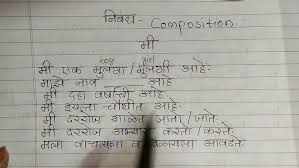 निबंध - Composition
मी
boy girl
मी एक मुलगा / मुलगी आहे.
माझे नाव आहे
मी दहा वर्षाची आहे.
मी इयत्ता चौथीत आहे.
मी दररोज शाळेत जातो / जाते.
मी दररोज अभ्यास करतो / करते.
मला वाचायला व आवडते.